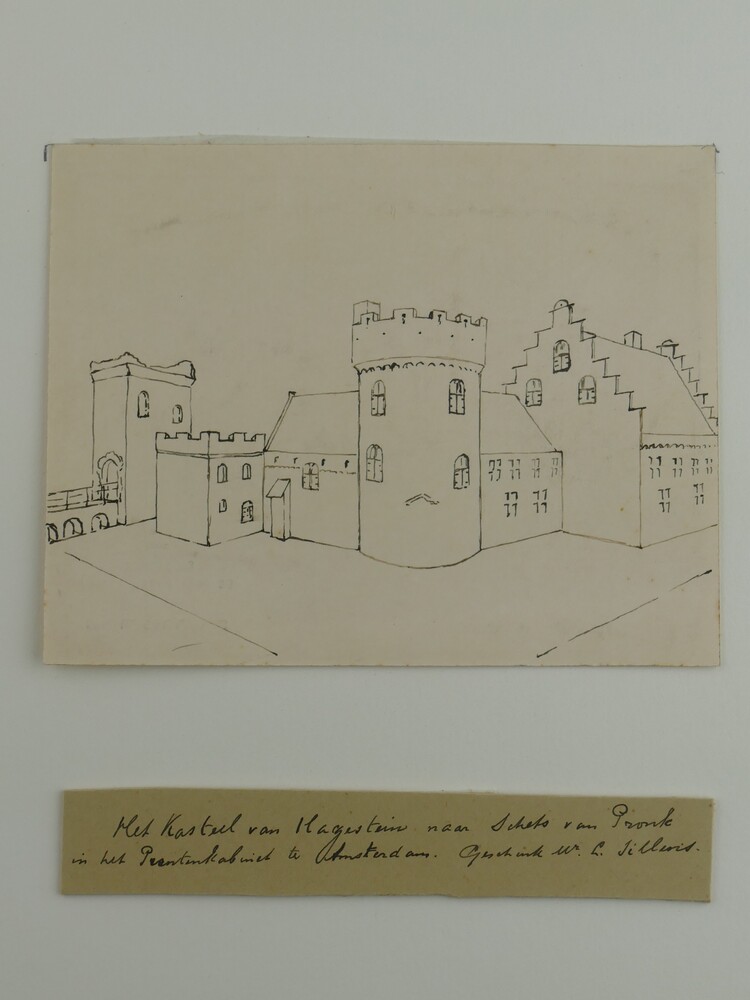 Het Kasteel van Hagestein naar Schets van Pronk
in het Prentenkabinet te Amsterdam. Geschenk